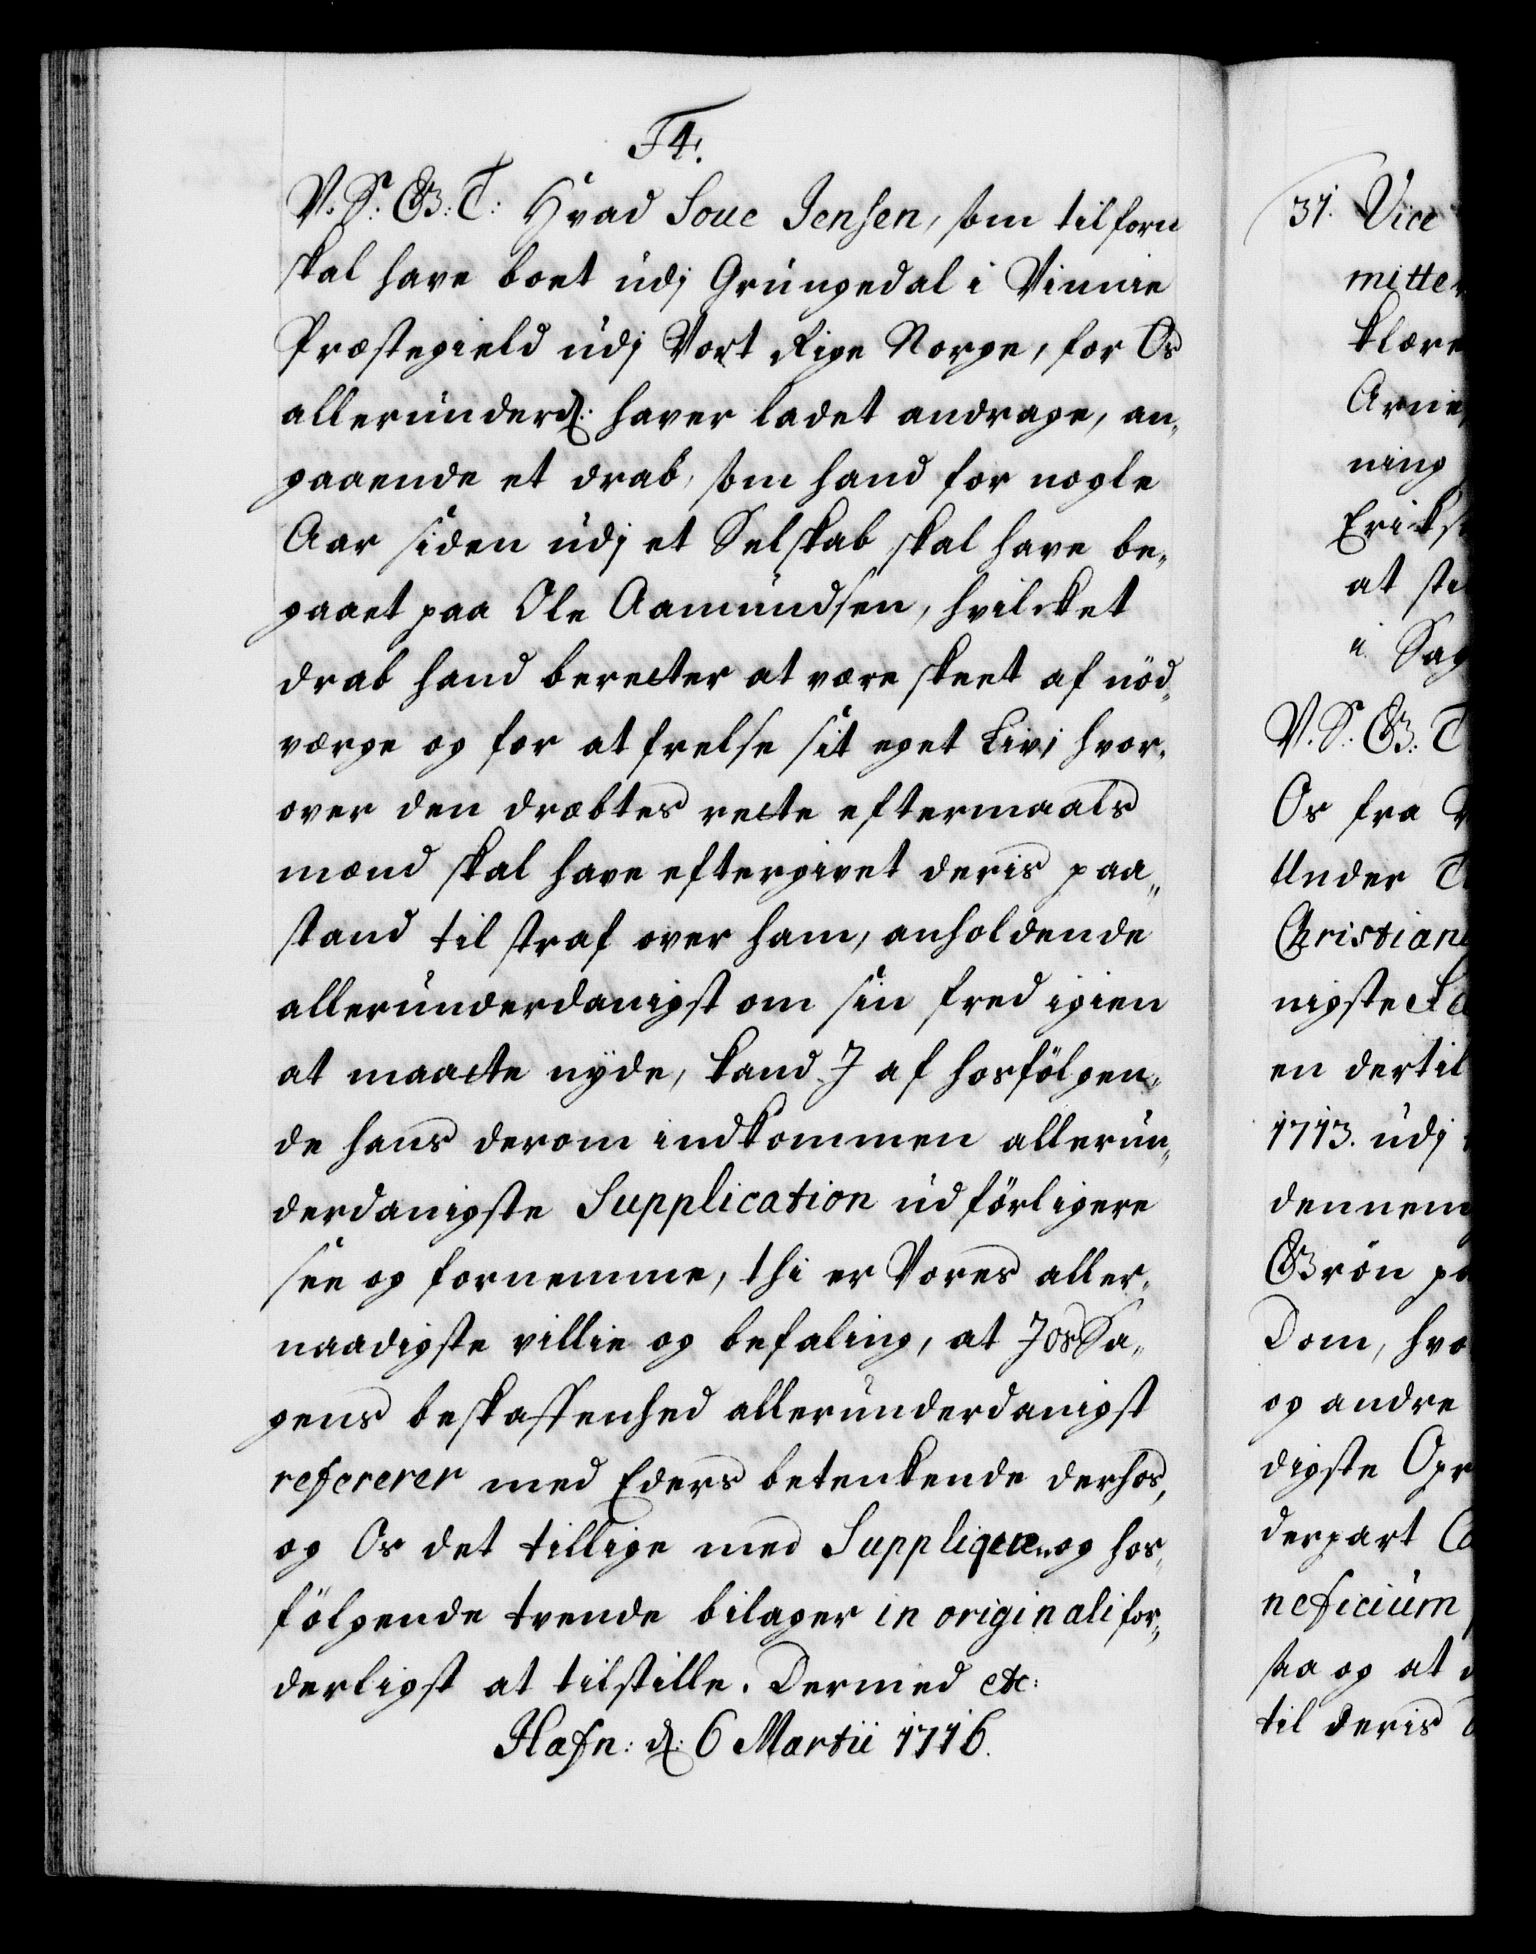 F4.
V. S. G: T: Hvad Soue Jensen, som tilforn
skal have boet udj Grungedal i Vinnie
Præstegield udj Vort Rige Norge, for Os
allerunderd: haver ladet andrage, an„
gaaende et drab, som hand for nogle
Aar siden udj et Selskab skal have be„
gaaet paa Ole Aamundsen, hvilcket
drab hand berecter at være skeet af nöd„
værge og for at frelse sit eget Liv; hvor„
over den dræbtes recte eftermaals
mænd skal have eftergivet deris paa„
stand til straf over ham, anholdende
allerunderdanigst om sin fred igien
at maacte nyde, kand J af hosfölgen„
de hans derom indkommen allerun„
derdanigste Supplication udförligere
see og fornemme, thi er Vores aller„
naadigste villie og befaling, at J os Sa„
gens beskaffenhed allerunderdanigst
refererer med Eders betenkende derhos,
og Os det tillige med Suppliqven og hos„
fölgende tvende bilager in originali for„
derligst at tilstille. Dermed etc:
Hafn: d: 6 Martii 1716.
31. Vice
mitte
klære
Arne
ning
Eriks
at ste
i Sag
V. S. G: T
Os fra
Under
Christian
nigste
en dertil
1713. udj
dennem
Grön pa
Dom, hvo
og andre
digste Opr
derpart Co
neficium
staa og at
til deris